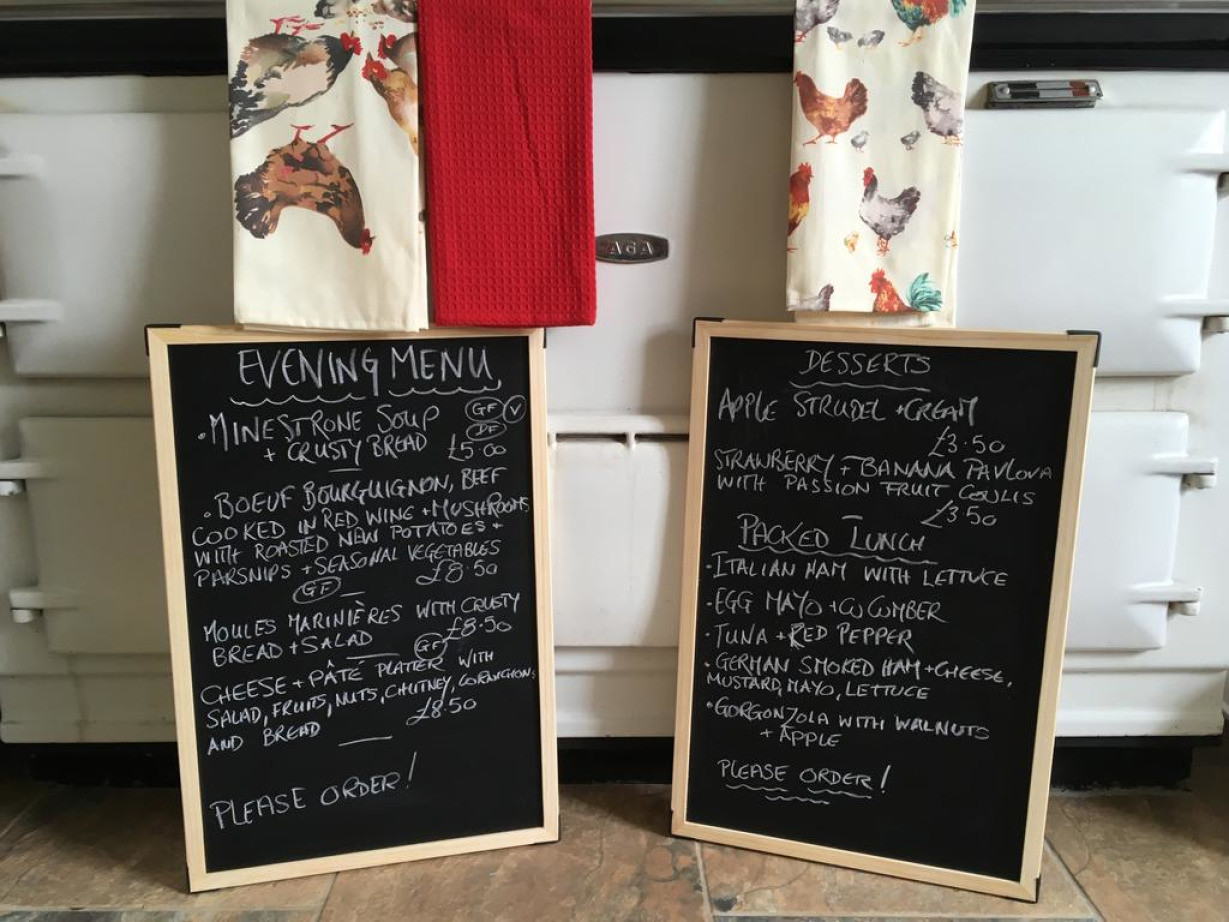 AGA
EVENING MENU
• MINESTRONE SOUP GF V
+ CRUSTY BREAD DF
£5.00
• BOEUF BOURGUIGNON, BEEF
COOKED IN RED WINE + MUSHROOMS
WITH ROASTED NEW POTATOES +
PARSNIPS + SEASONAL VEGETABLES
GF £8.50
MOULES MARINIÈRES WITH CRUSTY
BREAD + SALAD GF £8.50
CHEESE + PÂTÉ PLATTER WITH
SALAD, FRUITS, NUTS, CHUTNEY, CORNICHONS
AND BREAD £8.50
PLEASE ORDER!
DESSERTS
APPLE STRUDEL + CREAM
£3.50
STRAWBERRY + BANANA PAVLOVA
WITH PASSION FRUIT COULIS
£3.50
PACKED LUNCH
• ITALIAN HAM WITH LETTUCE
• EGG MAYO + CUCUMBER
• TUNA + RED PEPPER
• GERMAN SMOKED HAM + CHEESE,
MUSTARD, MAYO, LETTUCE
• GORGONZOLA WITH WALNUTS
+ APPLE
PLEASE ORDER!